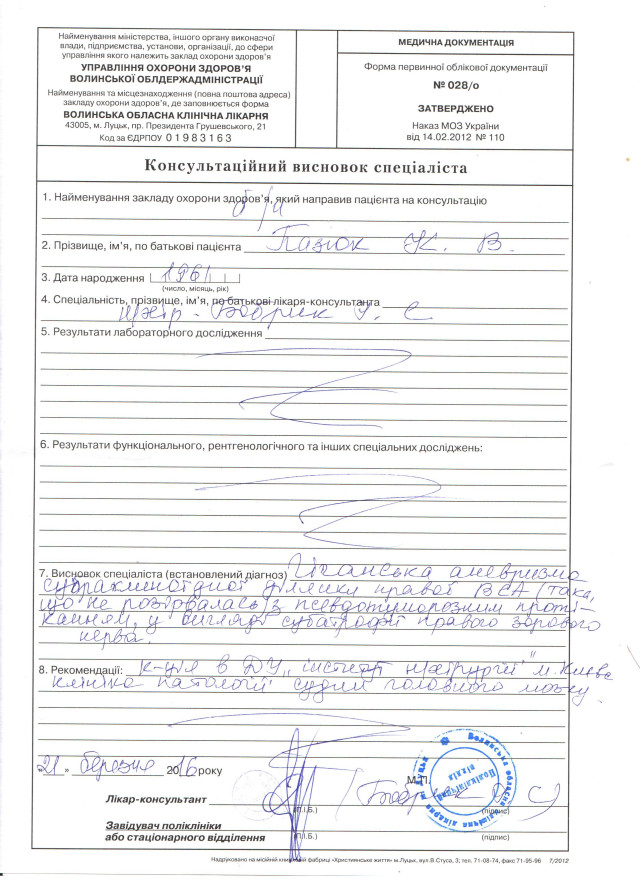 Найменування міністерства, іншого органу виконавчої
влади, підприємства, установи, організації, до сфери
управління якого належить заклад охорони здоров'я
УПРАВЛІННЯ ОХОРОНИ ЗДОРОВ'Я
ВОЛИНСЬКОЇ ОБЛДЕРЖАДМІНІСТРАЦІЇ
Найменування та місцезнаходження (повна поштова адреса)
закладу охорони здоров'я, де заповнюється форма
ВОЛИНСЬКА ОБЛАСНА КЛІНІЧНА ЛІКАРНЯ
43005, м. Луцьк, пр. Президента Грушевського, 21
Код за ЄДРПОУ 01983163
МЕДИЧНА ДОКУМЕНТАЦІЯ
Форма первинної облікової документації
№ 028/о
ЗАТВЕРДЖЕНО
Наказ МОЗ України
від 14.02.2012 № 110
Консультаційний висновок спеціаліста
1. Найменування закладу охорони здоров'я, який направив пацієнта на консультацію
2. Прізвище, ім'я, по батькові пацієнта Пазюк К. В.
3. Дата народження 1961
(число, місяць, рік)
4. Спеціальність, прізвище, ім'я, по батькові лікаря-консультанта
н/хір - Бобрик
5. Результати лабораторного дослідження
6. Результати функціонального, рентгенологічного та інших спеціальних досліджень:
7. Висновок спеціаліста (встановлений діагноз) Гігантська аневризма
супракліноїдної ділянки правої ВСА (така,
що не розірвалась) з псевдотуморозним проті-
канням, у вигляді субатрофії правого зорового
нерва.
8. Рекомендації: к-ція в ДУ "інститут н/хірургії" м. Києва
клініка патології судин головного мозку
"21" березня 2016 року
М.П.
Лікар-консультант Бобрик
(П.І.Б.) (підпис)
Завідувач поліклініки
або стаціонарного відділення (П.І.Б.) (підпис)
Волинська обласна клінічна лікарня
Надруковано на місійній книжковій фабриці «Християнське життя» м.Луцьк, вул.В.Стуса, 3; тел. 71-08-74, факс 71-95-96 7/2012